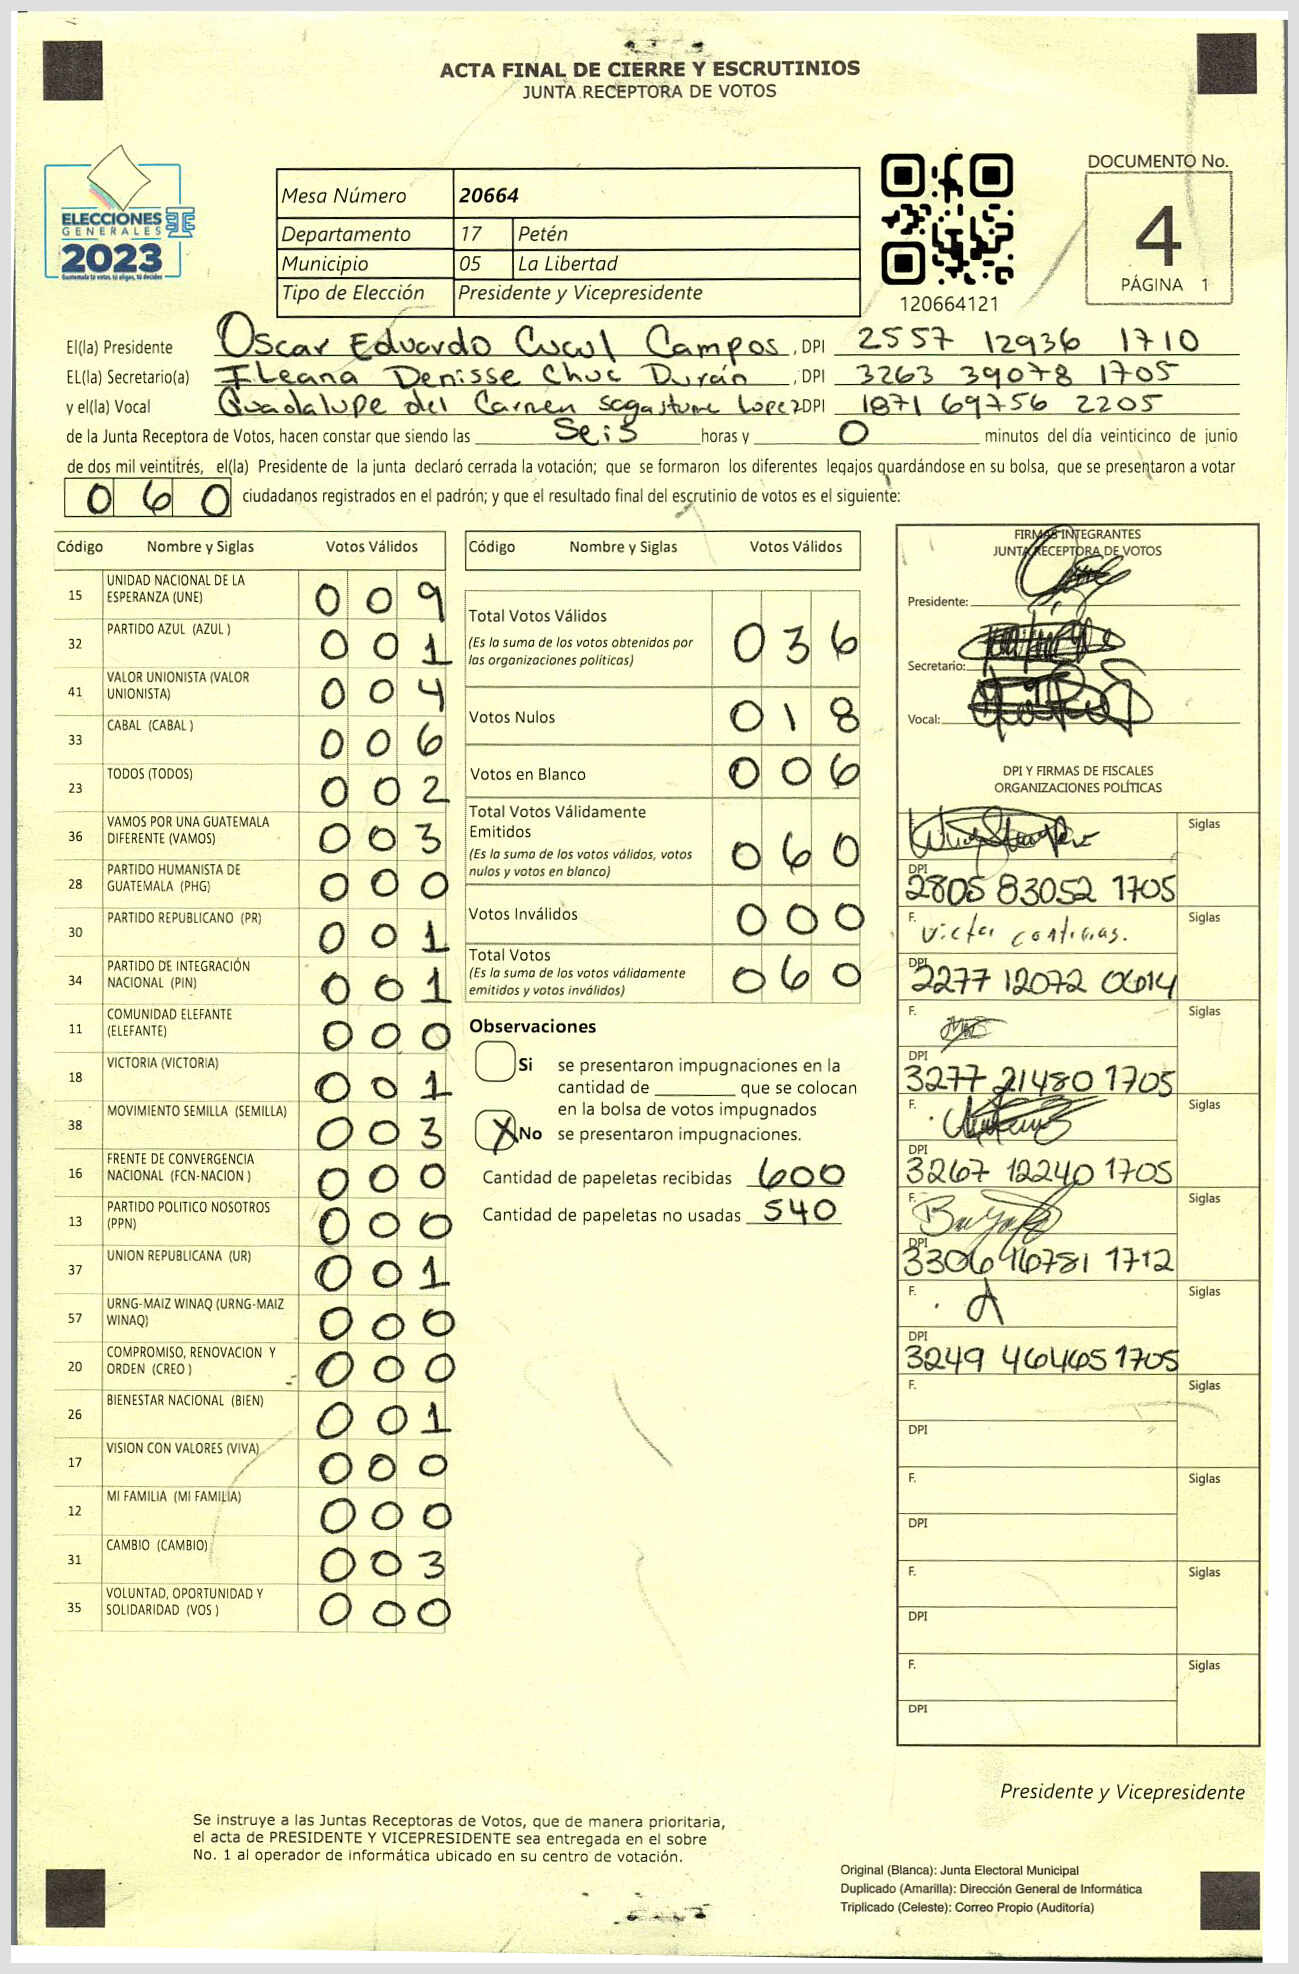 ACTA FINAL DE CIERRE Y ESCRUTINIOS
JUNTA RECEPTORA DE VOTOS
ELECCIONES
GENERALES
2023
Guatemala tú votas, tú eliges, tú decides
Mesa Número 20664
Departamento 17 Petén
Municipio 05 La Libertad
Tipo de Elección Presidente y Vicepresidente
120664121
DOCUMENTO No.
4
PÁGINA 1
El(la) Presidente Oscar Eduardo Cucul Campos, DPI 2557 12936 1710
EL(la) Secretario(a) Ileana Denisse Chuc Durán, DPI 3263 39078 1705
y el(la) Vocal Guadalupe del Carmen Sagastume Lopez DPI 1871 69756 2205
de la Junta Receptora de Votos, hacen constar que siendo las Seis horas y 0 minutos del día veinticinco de junio
de dos mil veintitrés, el(la) Presidente de la junta declaró cerrada la votación; que se formaron los diferentes legajos guardándose en su bolsa, que se presentaron a votar
060 ciudadanos registrados en el padrón; y que el resultado final del escrutinio de votos es el siguiente:
Código Nombre y Siglas Votos Válidos
15 UNIDAD NACIONAL DE LA ESPERANZA (UNE) 009
32 PARTIDO AZUL (AZUL ) 001
41 VALOR UNIONISTA (VALOR UNIONISTA) 004
33 CABAL (CABAL ) 006
23 TODOS (TODOS) 002
36 VAMOS POR UNA GUATEMALA DIFERENTE (VAMOS) 003
28 PARTIDO HUMANISTA DE GUATEMALA (PHG) 000
30 PARTIDO REPUBLICANO (PR) 001
34 PARTIDO DE INTEGRACIÓN NACIONAL (PIN) 001
11 COMUNIDAD ELEFANTE (ELEFANTE) 000
18 VICTORIA (VICTORIA) 001
38 MOVIMIENTO SEMILLA (SEMILLA) 003
16 FRENTE DE CONVERGENCIA NACIONAL (FCN-NACION ) 000
13 PARTIDO POLITICO NOSOTROS (PPN) 000
37 UNION REPUBLICANA (UR) 001
57 URNG-MAIZ WINAQ (URNG-MAIZ WINAQ) 000
20 COMPROMISO, RENOVACION Y ORDEN (CREO ) 000
26 BIENESTAR NACIONAL (BIEN) 001
17 VISION CON VALORES (VIVA) 000
12 MI FAMILIA (MI FAMILIA) 000
31 CAMBIO (CAMBIO) 003
35 VOLUNTAD, OPORTUNIDAD Y SOLIDARIDAD (VOS ) 000
Código Nombre y Siglas Votos Válidos
Total Votos Válidos 036
(Es la suma de los votos obtenidos por
las organizaciones políticas)
Votos Nulos 018
Votos en Blanco 006
Total Votos Válidamente
Emitidos 060
(Es la suma de los votos válidos, votos
nulos y votos en blanco)
Votos Inválidos 000
Total Votos 060
(Es la suma de los votos válidamente
emitidos y votos inválidos)
Observaciones
Si se presentaron impugnaciones en la
cantidad de ________ que se colocan
en la bolsa de votos impugnados
X No se presentaron impugnaciones.
Cantidad de papeletas recibidas 600
Cantidad de papeletas no usadas 540
FIRMAS INTEGRANTES
JUNTA RECEPTORA DE VOTOS
Presidente:
Secretario:
Vocal:
DPI Y FIRMAS DE FISCALES
ORGANIZACIONES POLÍTICAS
Siglas
DPI 2805 83052 1705
F. Victor Siglas
DPI 2277 12072 0614
F. Siglas
DPI 3277 21480 1705
F. Siglas
DPI 3267 12240 1705
F. Siglas
DPI 3306 46781 1712
F. Siglas
DPI 3249 46465 1705
F. Siglas
DPI
F. Siglas
DPI
F. Siglas
DPI
F. Siglas
DPI
Presidente y Vicepresidente
Se instruye a las Juntas Receptoras de Votos, que de manera prioritaria,
el acta de PRESIDENTE Y VICEPRESIDENTE sea entregada en el sobre
No. 1 al operador de informática ubicado en su centro de votación.
Original (Blanca): Junta Electoral Municipal
Duplicado (Amarilla): Dirección General de Informática
Triplicado (Celeste): Correo Propio (Auditoría)